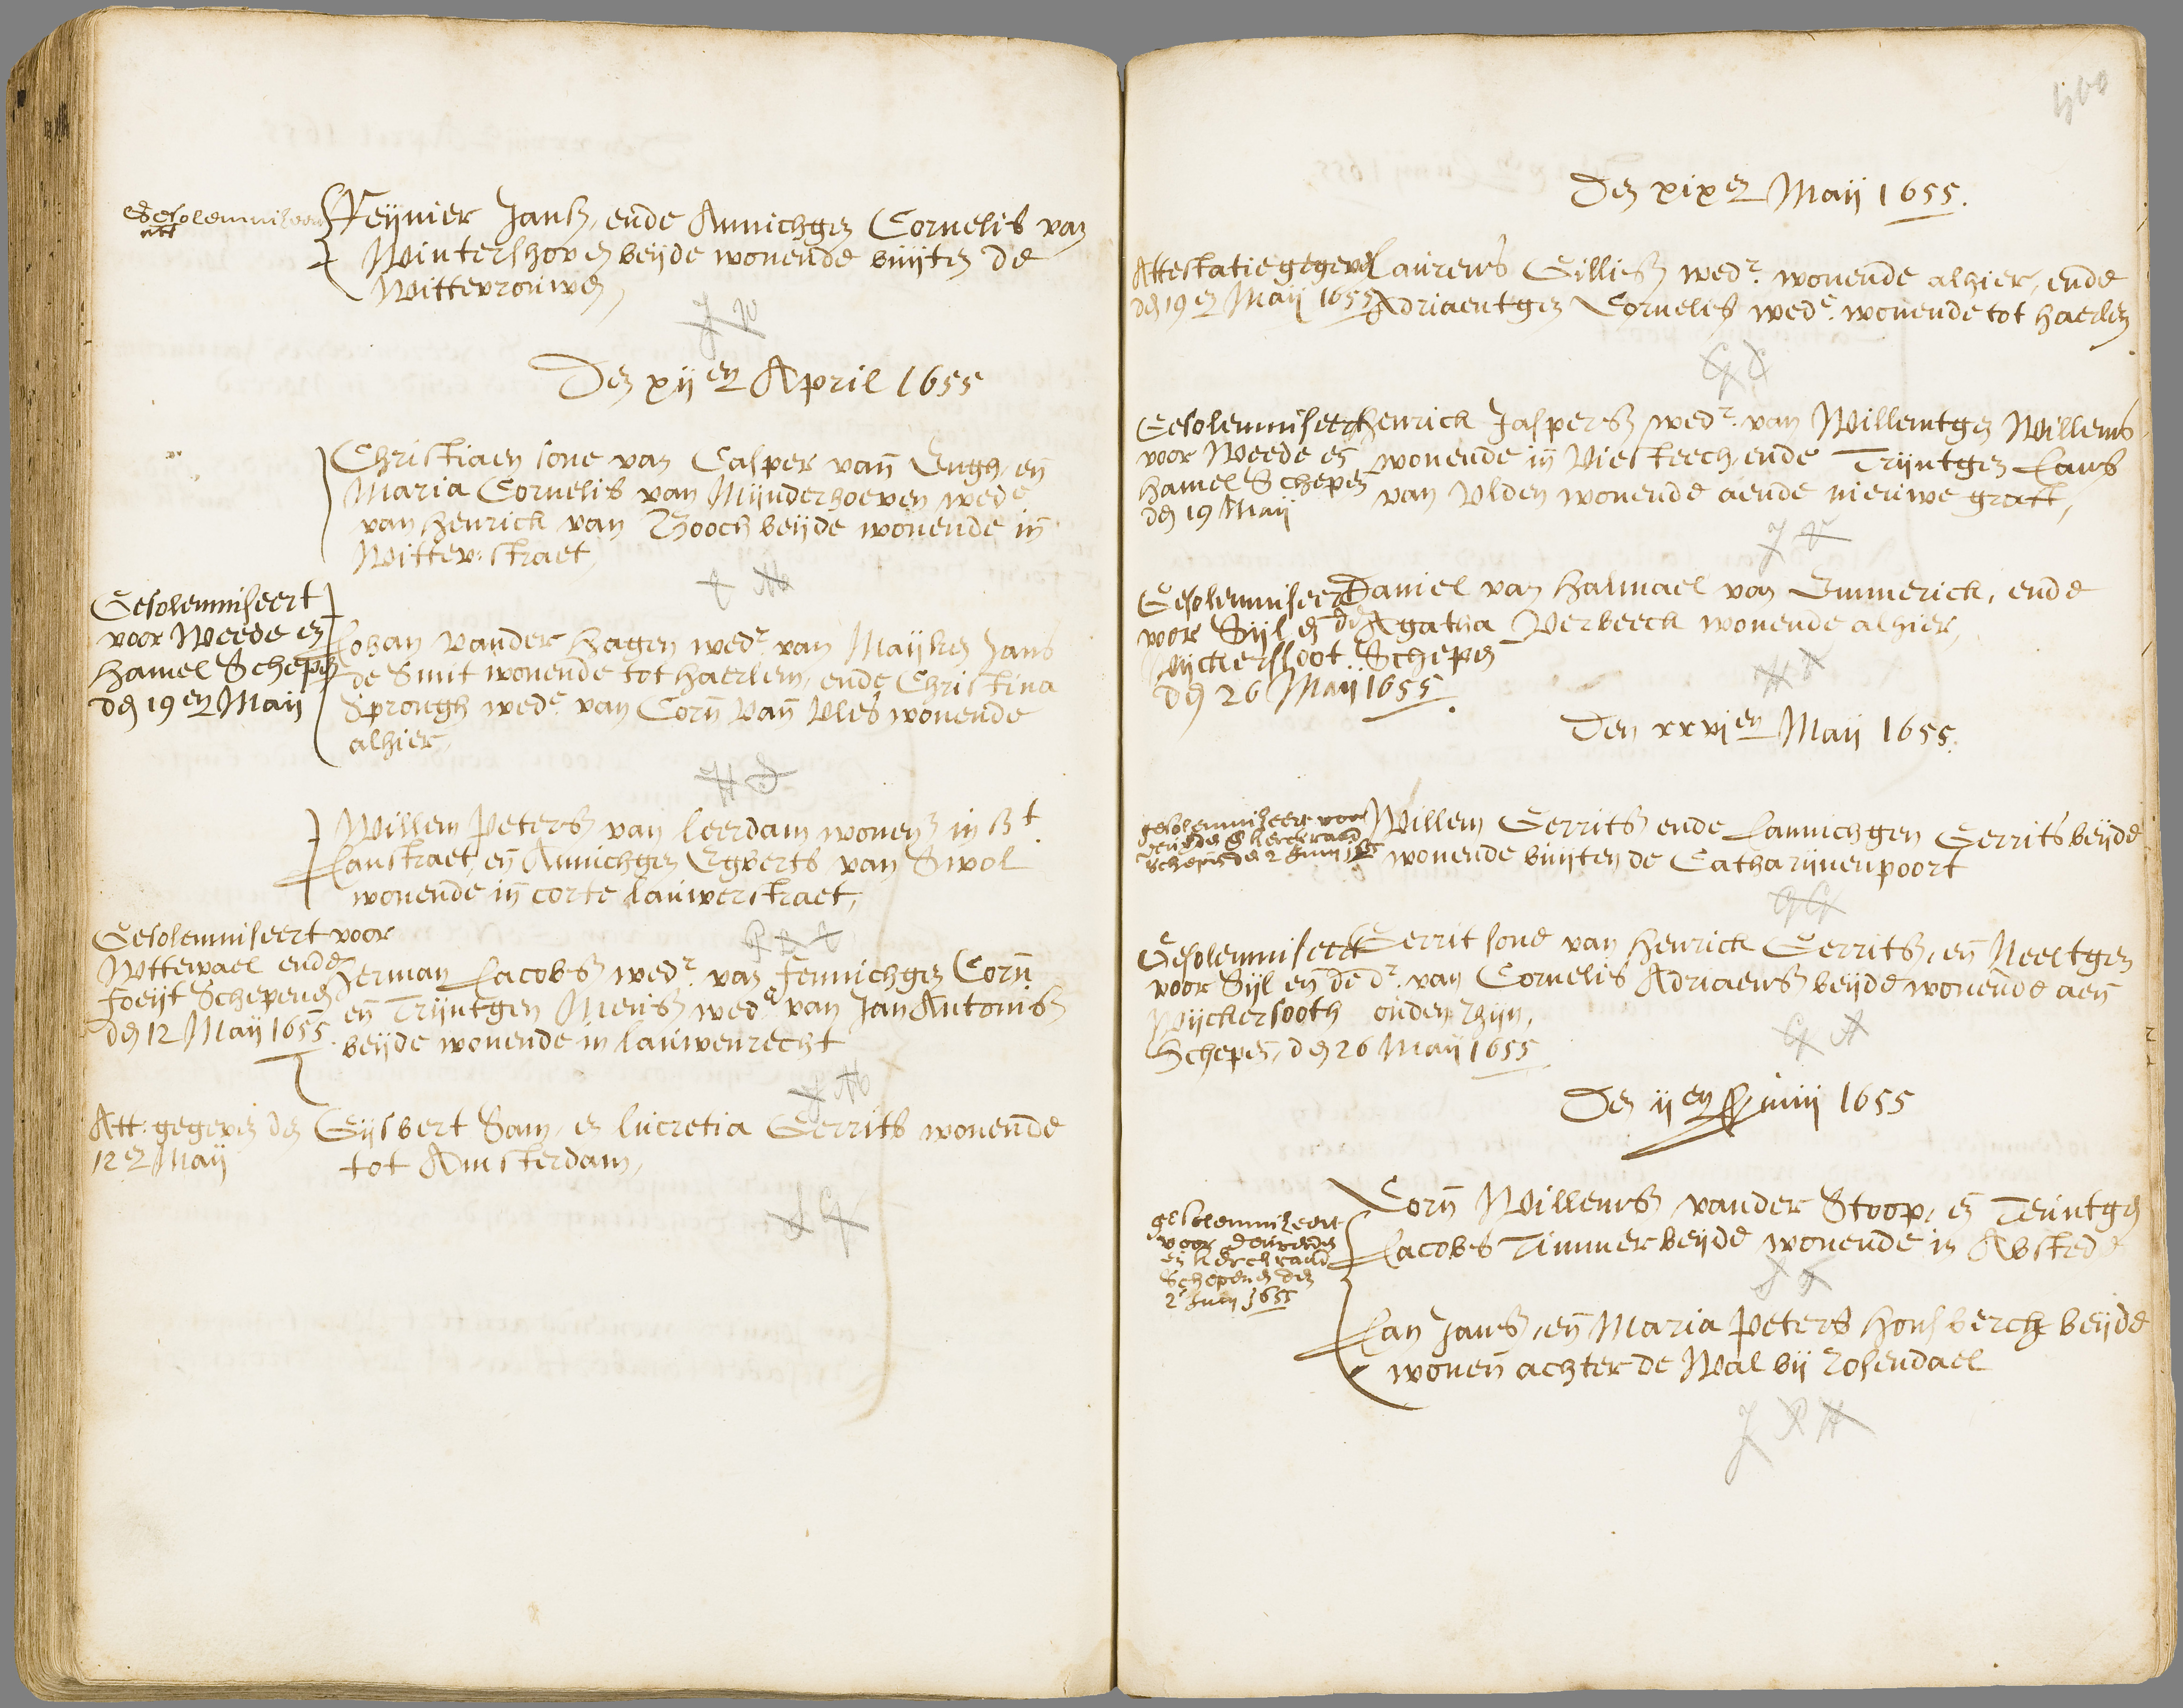 Gesolemniseert
att
Reijnier Jansz, ende Annichgen Cornelis van
Wintershoven beijde wonende buijten de
Wittevrouwen,
J W
Den xijen April 1655
Christiaen sone van Casper van Lugh, en
Maria Cornelis van Mijnderhoeven wede
van Henrick van Booch beijde wonende in
Witter straet,
C M
Gesolemniseert
voor Weede en
Hamel Schepen
den 19en Maij
Johan vander Hagen wedr. van Maijken Jans
de Smit wonende tot Haerlem, ende Christina
Sprongh wede. van Corn van Vles wonende
alhier,
H S
Willem Peters van Leerdam wonen in St.
Janstraet, en Annichgen Egberts van Swol
wonende in corte lauwerstraet,
P E
Gesolemniseert voor
Wttewael ende
Foeijt Schepenen
den 12 Maij 1655
Herman Jacobsz wedr. van Fennichgen Corn.
en Trijntgen Meusz wede van Jan Antonisz
beijde wonende in lauwenrecht
J M
Att. gegeven den
12en Maij
Gijsbert Sam, en Lucretia Gerrits wonende
tot Amsterdam,
S G
400
Den xixen Maij 1655.
Attestatie gegeven
den 19en Maij 1655
Laurens Gillisz wedr. wonende alhier, ende
Adriaentgen Cornelis wede. wonende tot Haerlem
G C
Gesolemniseert
voor Weede en
Hamel Schepen
den 19 Maij
Henrick Jaspersz wedr. van Willemtgen Willems
wonende in Viesteech, ende Trijntgen Jans
van Vlden wonende aende nieuwe graft,
J V
Gesolemniseert
voor Sijl en dr
Wijckersloot Schepen
den 26 Maij 1655.
Daniel van Halmael van Emmerick, ende
Agatha Verbeeck wonende alhier,
H V
Den xxvien Maij 1655.
gesolemniseert voor
en Kerckraad
Schepen den 2 Junij 1655
Willem Gerritsz ende Jannichgen Gerrits beijde
wonende buijten de Catharijnenpoort
G G
Gesolemniseert
voor Sijl en de dr.
Wijckersooth
Schepen, den 26 Maij 1655
Gerrit sone van Henrick Gerritsz, en Neeltgen
van Cornelis Adriaensz beijde wonende aen
ouden Rhijn,
G A
Den ijen Junij 1655
gesolemniseert
voor
en Kerckraad
Schepenen den
2 Junij 1655
Corn Willemsz vander Stoop, en Teuntgen
Jacobs Timmer beijde wonende in Abstede
S T
Jan Jansz, en Maria Peters Honsberch beijde
wonen achter de Wal bij Rosendael
J P H